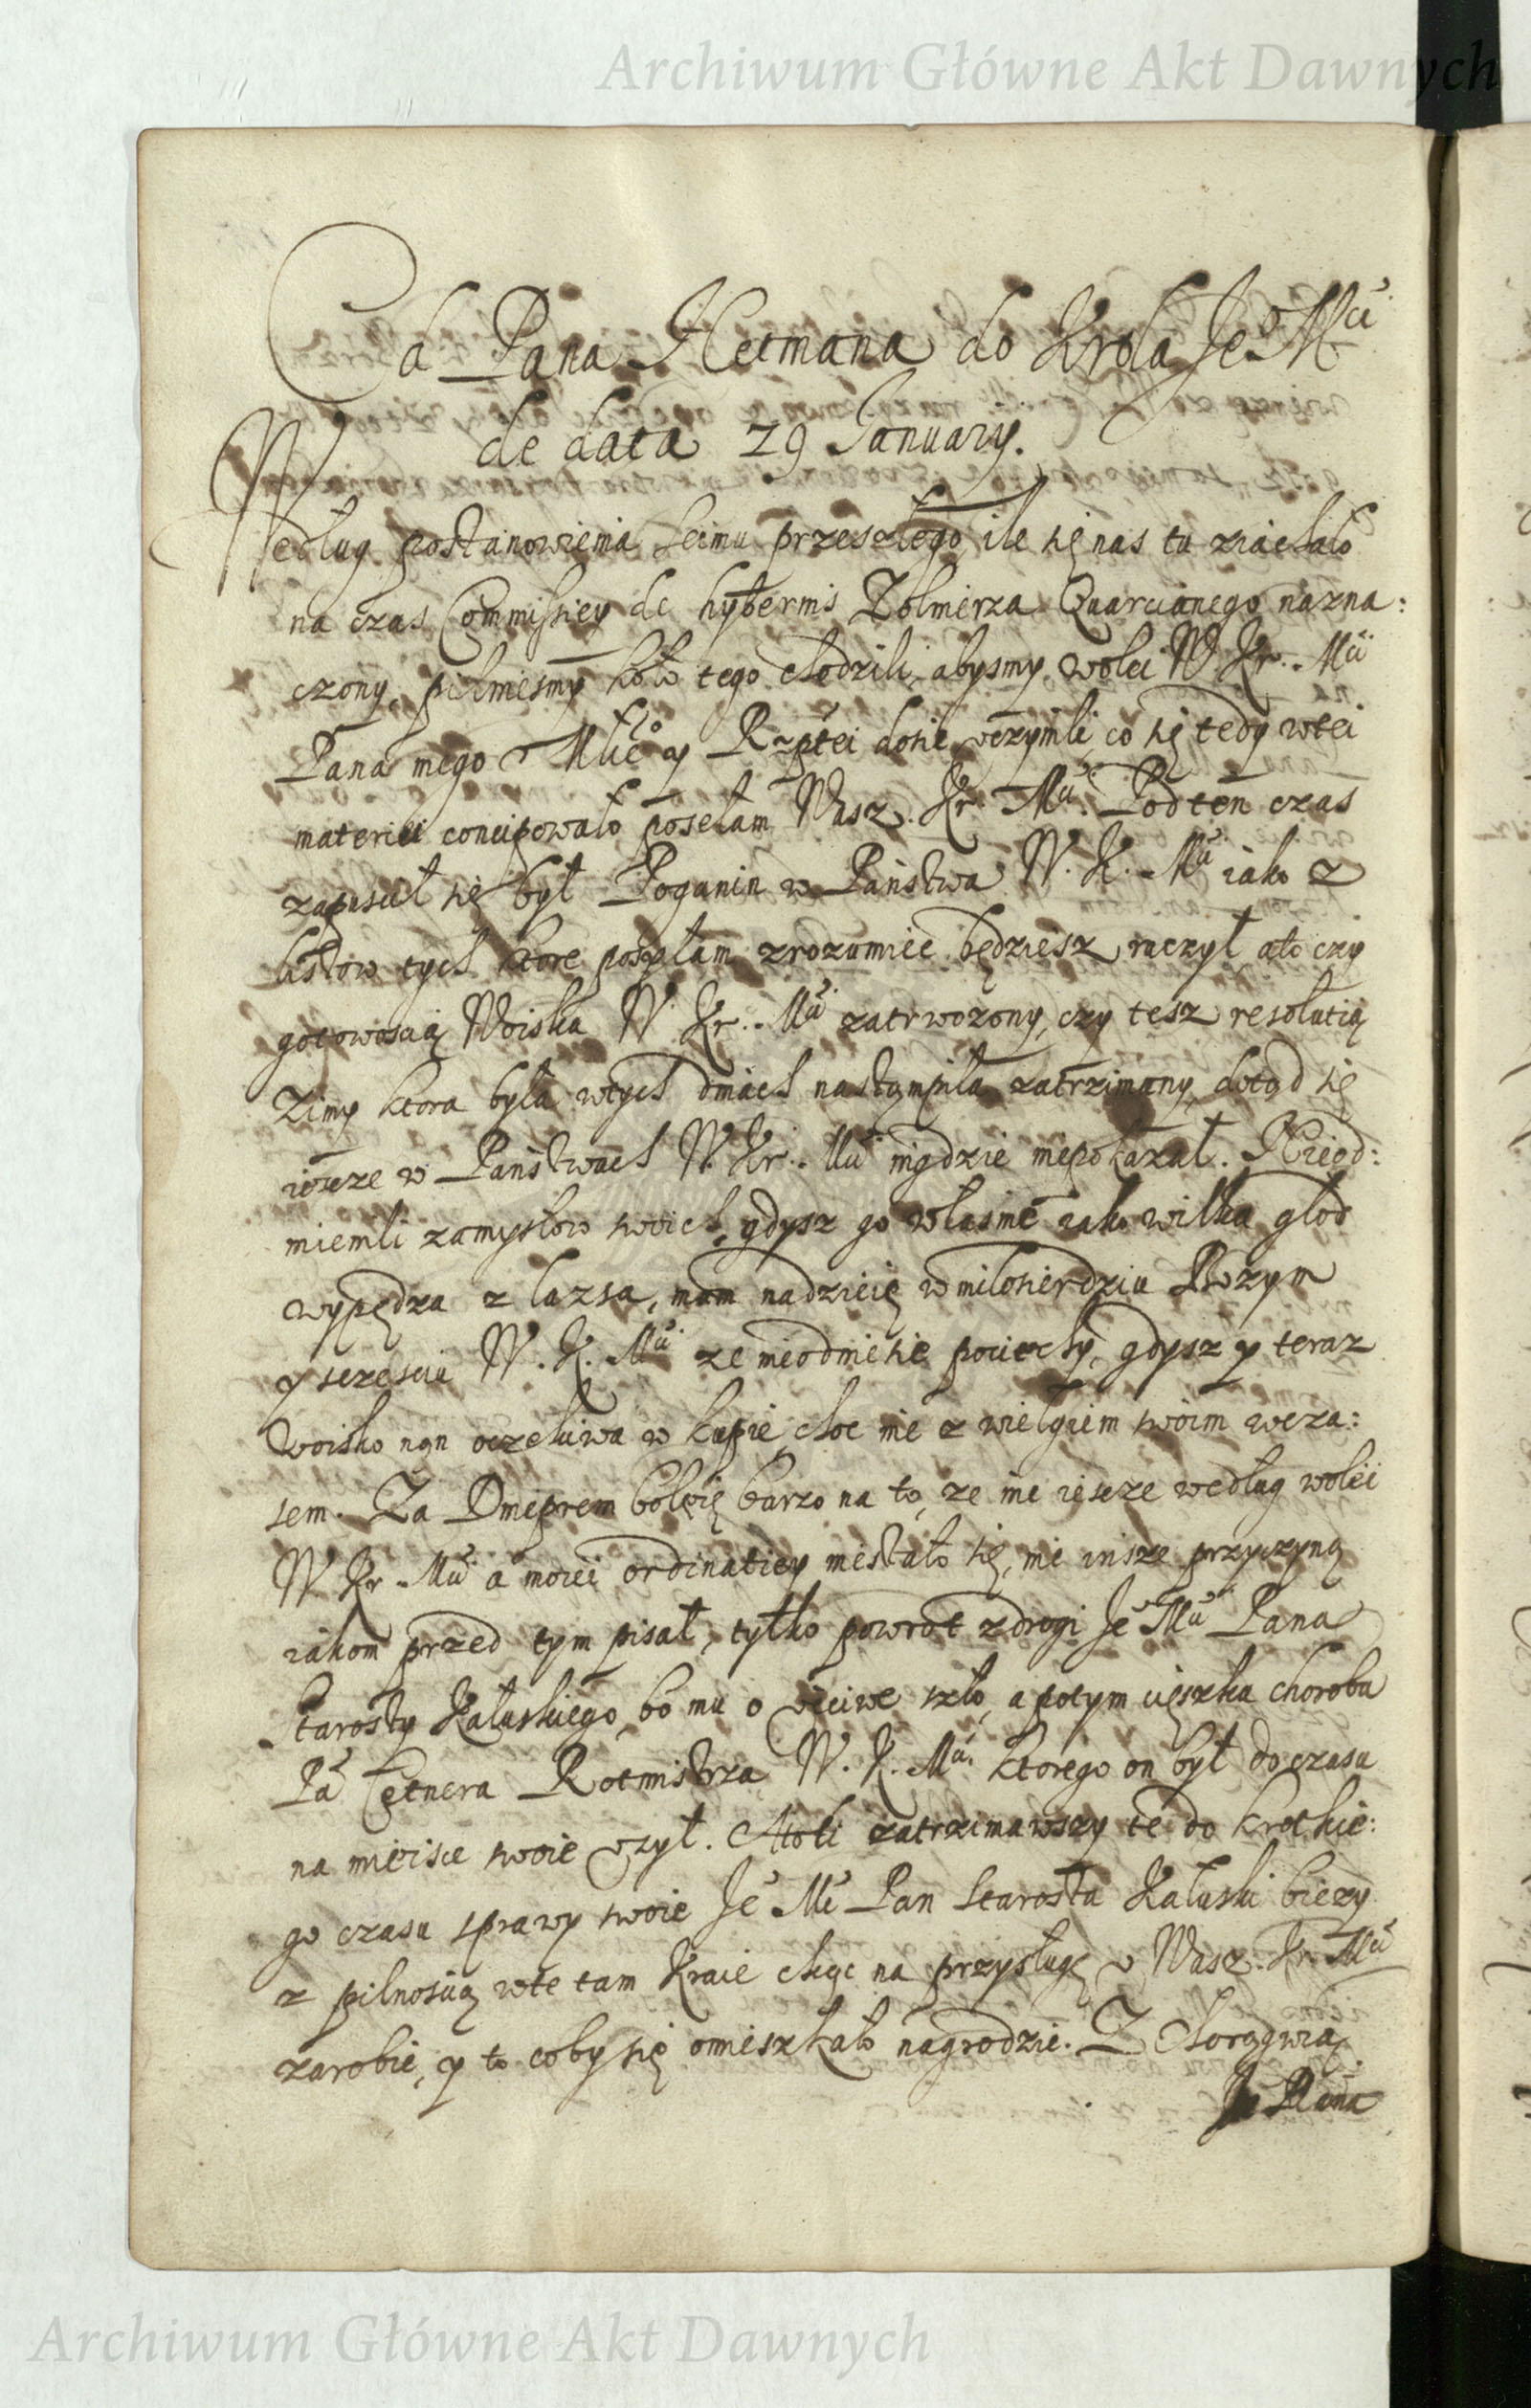 Archiwum Główne Akt Dawnych
Od Pana Hetmana do Krola Je° Mći
de data 29 January.
Według postanowienia Seimu przeszłego, ile się nas tu ziachało
na czas Commissiey de hybernis Zołnierza Quarcianego nazna:
czony, pilniesmy koło tego chodzili, abysmy wolei W. Kr. Mći
Pana mego Młłć° y Rzptei dosić uczynili, co się tedy wtei
materiei concipowało posełam Wasz. Kr. Mći. Pod ten czas
zapuscił się był Poganin w Państwa W. K. Mći iako z
listow tych ktore posyłam zrozumiec będziesz raczył, ale czy
gotowoscią Woiska W. Kr. Mći zatrwozony, czy tesz resolutią
Zimy ktora była wtych dniach nastąmpiła zatrzimany, dotąd się
iescze w Państwach W. Kr. Mći nigdzie niepokazał. Nieod:
mienili zamysłow swoich, gdysz go własnie iako wilka głod
wypędza z lazsa, mam nadzieię w miłosierdziu Bozym
y sczesciu W. K. Mći ze nieodniesie pociechy, gdysz y teraz
Woisko nan oczekiwa w kupie choc nie z wielgiem swoim wcza:
sem. Za Dnieprem boleię barzo na to, ze nie iescze według wolei
W. Kr. Mći a moiei ordinatiey niestało się, nie insze przyczyną
iakom przed tym pisał, tylko powrot zdrogi Je° Mći Pana
Starosty Kałuskiego, bo mu o ućciwe szło, a potym cięszka choroba
Pa Cetnera Rotmistrza W. K. Mći. ktorego on był do czasu
na mieisce swoie uzył. Atoli zatrzimawszy te do krotkie:
go czasu sprawy swoie Je° Mć Pan Starosta Kałuski biezy
z pilnoscią wte tam Kraie chcąc na przysługę u Wasz. Kr. Mći
zarobić, y to coby się omieszkało nagrodzić. Z Chorągwią
Je Pana
Archiwum Główne Akt Dawnych